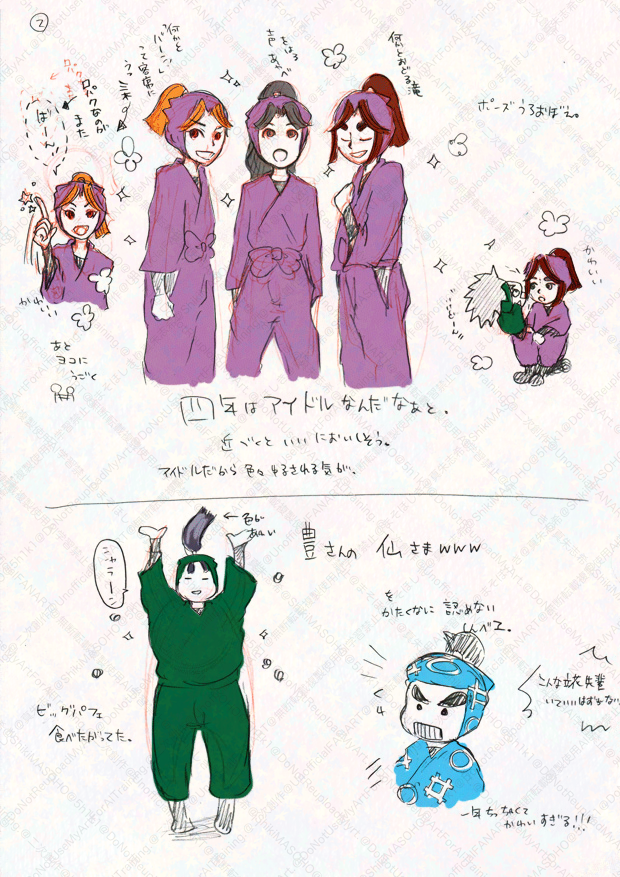 ②
何かと
バーン!
って客席に
うつ三木
声をはる
あやべ
何とおどる滝
ポーズうろおぼえ。
ロパクなのが
また
ばーん
かわいい
あと
ヨコに
うごく
かわいい
四年はアイドルなんだなぁと。
近づくといいにおいしそう。
アイドルだから色々ゆるされる気が。
色が
あおい
シャラーン
豊さんの 仙さまwww
を
かたくなに 認めない
しんべヱ。
こんな立花先輩
いていいはずがない
ビッグパフェ
食べたがってた。
一年ちっちゃくて
かわいすぎる!!!